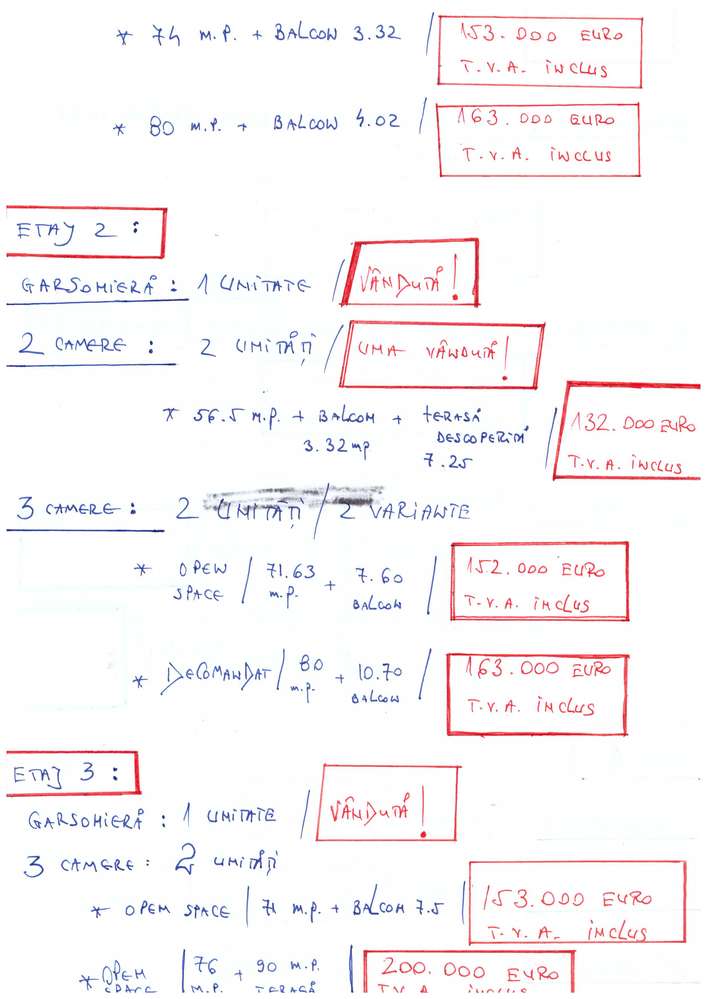 * 74 M.P. + BALCON 3.32 / 153.000 EURO
T.V.A. INCLUS
* 80 M.P. + BALCON 4.02 / 163.000 EURO
T.V.A. INCLUS
ETAJ 2 :
GARSONIERĂ : 1 UNITATE / VÂNDUTĂ !
2 CAMERE : 2 UNITĂȚI / UNA VÂNDUTĂ !
* 56.5 M.P. + BALCON + TERASĂ / 132.000 EURO
3.32 mp DESCOPERITĂ
7.25 T.V.A. INCLUS
3 CAMERE : 2 UNITĂȚI / 2 VARIANTE
* OPEN / 71.63 + 7.60 / 152.000 EURO
SPACE M.P. BALCON T.V.A. INCLUS
* DECOMANDAT / 80 + 10.70 / 163.000 EURO
M.P. BALCON T.V.A. INCLUS
ETAJ 3 :
GARSONIERĂ : 1 UNITATE / VÂNDUTĂ !
3 CAMERE : 2 UNITĂȚI
* OPEN SPACE / 71 M.P. + BALCON 7.5 / 153.000 EURO
T.V.A. INCLUS
* OPEN / 76 + 90 M.P. / 200.000 EURO
SPACE M.P. TERASĂ T.V.A INCLUS